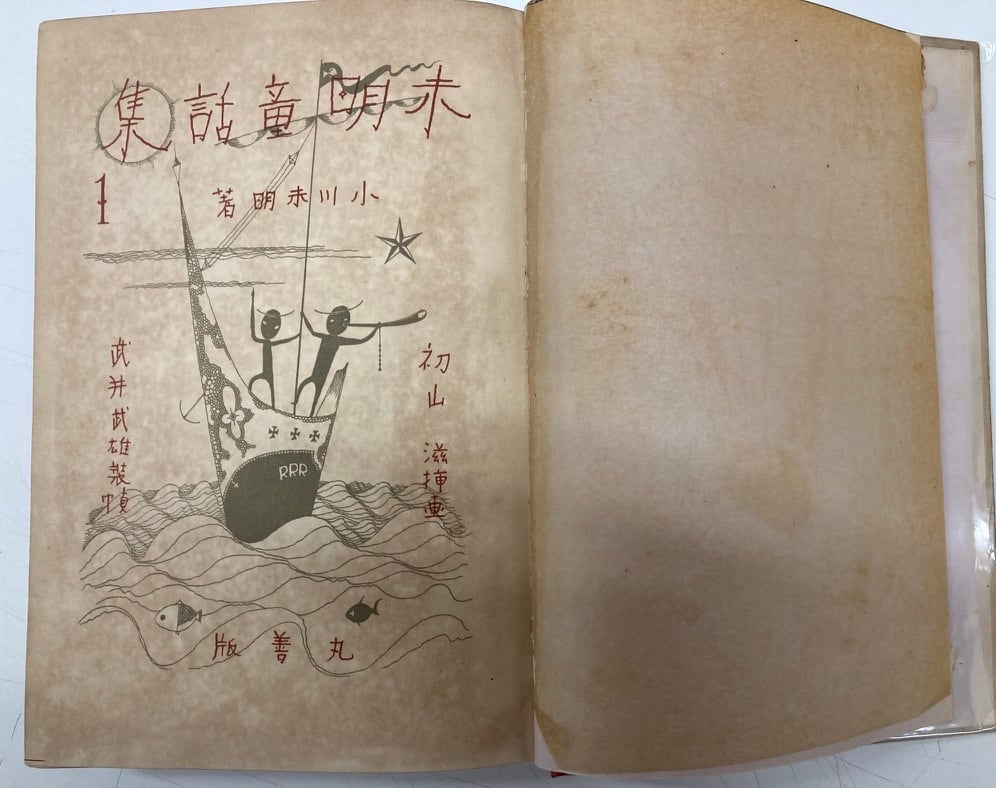 未明童話集
1
小川未明著
初山 滋挿画
武井武雄装幀
RRR
丸善版